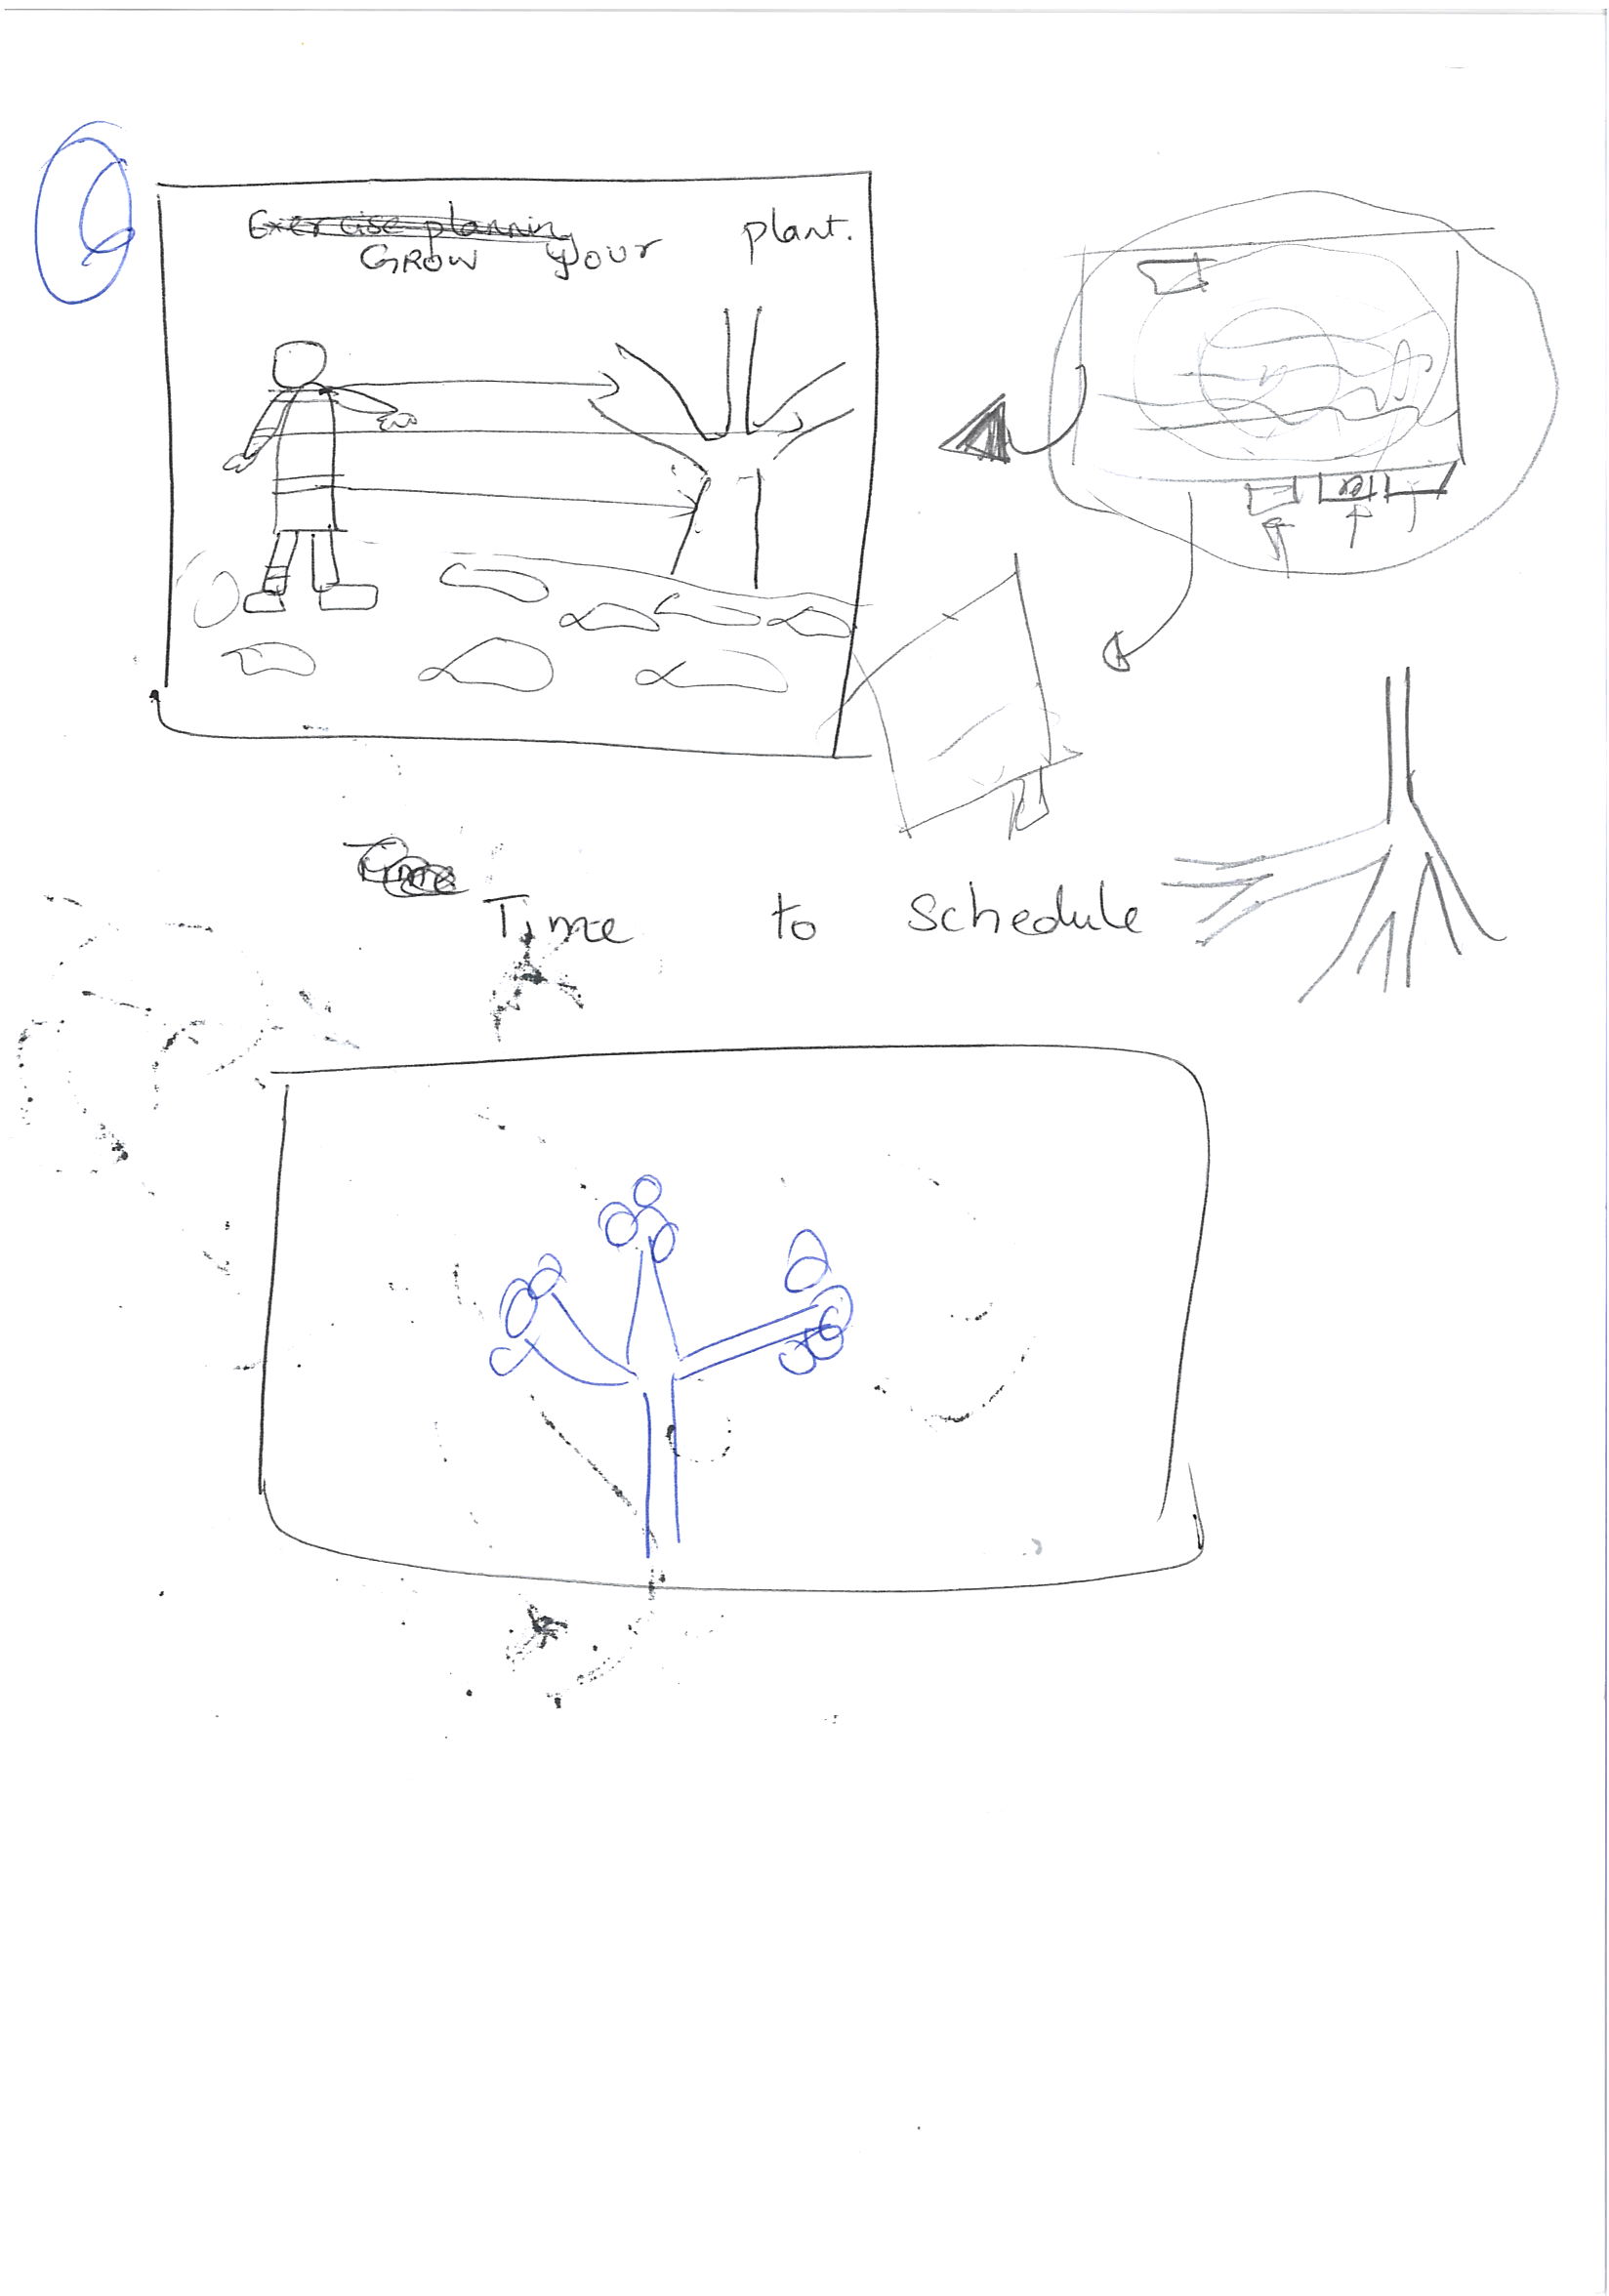 Exercise planning
GROW your plant.
Time
Time to schedule